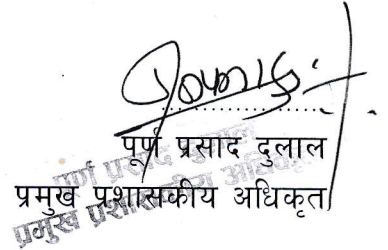 पूर्ण प्रसाद दुलाल
प्रमुख प्रशासकीय अधिकृत
पूर्ण प्रसाद दुलाल
प्रमुख प्रशासकीय अधिकृत